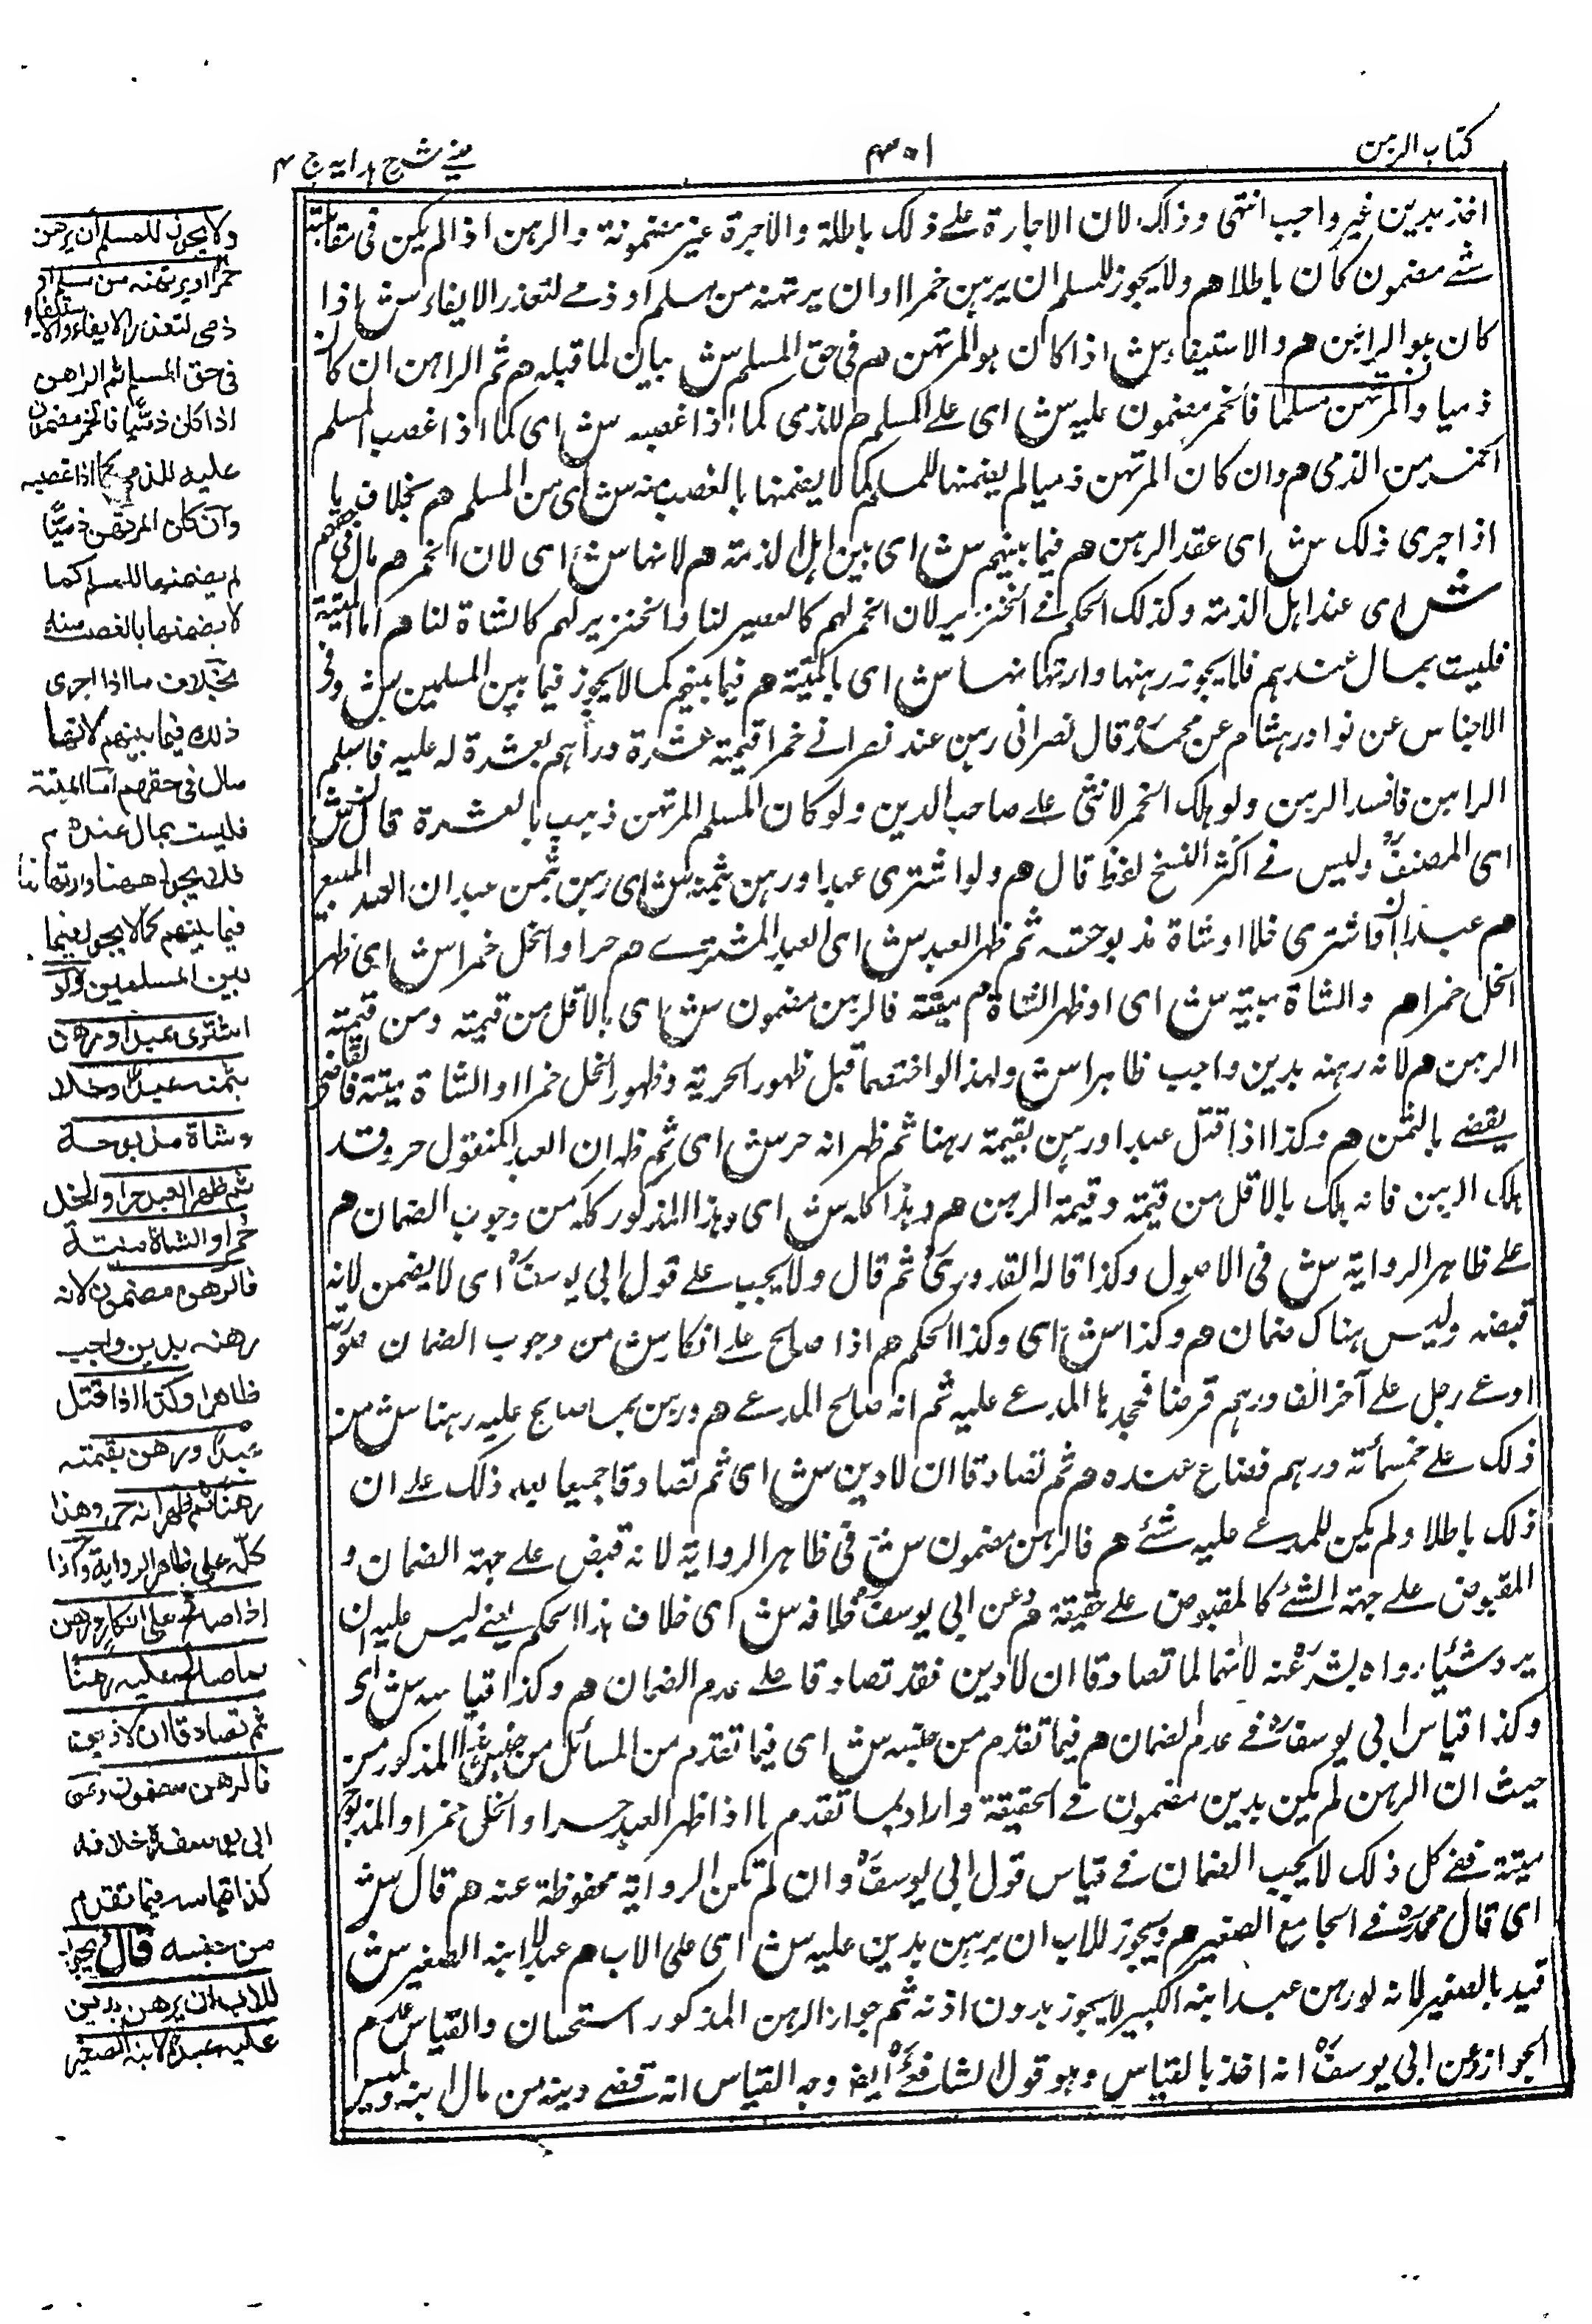 كتاب الرهن
٣٥١
عيني شرح هدايه ج ٤
اخذ بدين غير واجب انتهى وذلك لان الاجارة على ذلك باطلة والاجرة غير مضمونة والرهن اذا لم يكن فى مقابلته
شئ مضمون كان باطلا هم ولا يجوز للمسلم ان يرهن خمرا او ان يرتهنه من مسلم او ذمى لتعذر الايفاء ش اذا
كان هو الراهن هم والاستيفاء ش اذا كان هو المرتهن هم فى حق المسلم ش بيان لما قبله هم ثم الراهن ان كان
ذميا والمرتهن مسلما فالخمر مضمون عليه ش اى على المسلم هم للذمى كما اذا غصبه ش اى كما اذا غصب المسلم
الخمر من الذمى هم وان كان المرتهن ذميا لم يضمنها للمسلم كما لا يضمنها بالغصب منه ش اى من المسلم هم بخلاف ما
اذا جرى ذلك ش اى عقد الرهن هم فيما بينهم ش اى بين اهل الذمة هم لانها ش اى لان الخمر هم مال فى حقهم
ش اى عند اهل الذمة وكذلك الحكم فى الخنزير لان الخمر لهم كالعصير لنا والخنزير لهم كالشاة لنا هم اما الميتة
فليست بمال عندهم فلا يجوز رهنها وارتهانها ش اى بالميتة هم فيما بينهم كما لا يجوز فيما بين المسلمين ش وفى
الاجناس عن نوادر هشام عن محمدؒ قال نصرانى رهن عند نصرانى خمرا قيمته عشرة دراهم بعشرة له عليه فاسلم
الراهن فافسد الرهن ولو هلك الخمر لا شئ على صاحب الدين ولو كان المسلم المرتهن ذهب بالعشرة قال ش
اى المصنفؒ وليس فى اكثر النسخ لفظ قال هم ولو اشترى عبدا ورهن بثمنه ش اى رهن بثمن عبد ان العبد المبيع
هم عبدا او اشترى خلا او شاة مذبوحة ثم ظهر العبد ش اى العبد المشترى هم حرا والخل خمرا ش اى ظهر
الخل خمرا هم والشاة ميتة ش اى او ظهر الشاة هم ميتة فالرهن مضمون ش اى بالاقل من قيمته ومن قيمة
الرهن هم لانه رهنه بدين واجب ظاهرا ش ولهذا لو اختصما قبل ظهور الحرية وظهور الخل خمرا او الشاة ميتة فالقاضى
يقضى بالثمن هم وكذا اذا قتل عبدا ورهن بقيمته رهنا ثم ظهر انه حر ش اى ثم ظهر ان العبد المقتول حر وقد
هلك الرهن فانه يهلك بالاقل من قيمته وقيمة الرهن هم وهذا كله ش اى وهذا المذكور كله من وجوب الضمان هم
على ظاهر الرواية ش فى الاصول وكذا قاله القدورىؒ ثم قال ولا يجب على قول ابى يوسفؒ اى لا يضمن لانه
قبضه وليس هناك ضمان هم وكذا ش اى وكذا الحكم هم اذا صالح على انكار ش من وجوب الضمان صورته
ادعى رجل على آخر الف درهم قرضا فجحدها المدعى عليه ثم انه صالح المدعى هم ورهن بما صالح عليه رهنا ش من
ذلك على خمسمائة درهم فضاع عنده هم ثم تصادقا ان لا دين ش اى ثم تصادقا جميعا بعد ذلك على ان
ذلك باطلا ولم يكن للمدعى عليه شئ هم فالرهن مضمون ش فى ظاهر الرواية لانه قبض على جهة الضمان و
المقبوض على جهة الشئ كالمقبوض على حقيقته هم وعن ابى يوسفؒ خلافه ش اى خلاف هذا الحكم يعنى ليس عليه ان
يرد شيئا رواه بشرؒ عنه لانهما لما تصادقا ان لا دين فقد تصادقا على عدم الضمان هم وكذا قياسه ش اى
وكذا قياس ابى يوسفؒ فى عدم الضمان هم فيما تقدم من جنسه ش اى فيما تقدم من المسائل من جنس هذا المذكور من
حيث ان الرهن لم يكن بدين مضمون فى الحقيقة واراد بما تقدم ما اذا ظهر العبد حرا والخل خمرا والمذبوحة
ميتة ففى كل ذلك لا يجب الضمان فى قياس قول ابى يوسفؒ وان لم تكن الرواية محفوظة عنه هم قال ش
اى قال محمدؒ فى الجامع الصغير هم ويجوز للاب ان يرهن بدين عليه ش اى على الاب هم عبدا لابنه الصغير ش
قيد بالصغير لانه لو رهن عبد ابنه الكبير لا يجوز بدون اذنه ثم جواز الرهن المذكور استحسان والقياس عدم
الجواز وعن ابى يوسفؒ انه اخذ بالقياس وهو قول الشافعىؒ ايضا وجه القياس انه قضى دينه من مال ابنه وليس
ولا يجوز للمسلم أن يرهن
خمرا او يرتهنه من مسلم او
ذمى لتعذر الايفاء والاستيفاء
فى حق المسلم ثم الراهن
اذا كان ذميًّا فالخمر مضمون
عليه للذمى كما اذا غصبه
وان كان المرتهن ذميًّا
لم يضمنها للمسلم كما
لا يضمنها بالغصب منه
بخلاف ما اذا جرى
ذلك فيما بينهم لانها
مال فى حقهم اما الميتة
فليست بمال عندهم
فلا يجوز رهنها وارتهانها
فيما بينهم كما لا يجوز فيما
بين المسلمين ولو
اشترى عبدا ورهن
بثمنه عبدًا او خلا
وشاة مذبوحة
ثم ظهر العبد حرا والخل
خمرا والشاة ميتة
فالرهن مضمون لانه
رهنه بدين واجب
ظاهرا وكذا اذا قتل
عبدًا ورهن بقيمته
رهنًا ثم ظهر انه حر وهذا
كلّه على ظاهر الرواية وكذا
اذا صالح على انكار ورهن
بما صالح عليه رهنًا
ثم تصادقا ان لا دين
فالرهن مضمون وعن
ابى يوسفؒ خلافه
كذا قياسه فيما تقدم
من جنسه قال ويجوز
للاب ان يرهن بدين
عليه عبدًا لابنه الصغير